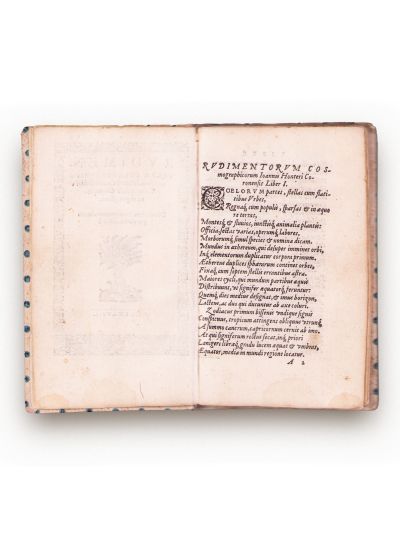 RVDIMENTORVM COS-
mographicorum Ioannis Honteri Co-
ronensis Liber I.
COELORVM partes, stellas cum flati-
bus Vrbes,
Regnaq; cum populis, sparsas & in æquo
re terras,
Montesq; & fluuios, iunctisq; animalia plantis:
Officia, sectas varias, operumq; labores.
Morborumq; simul species & nomina dicam.
Mundus in æthereum, qui desuper imminet orbi,
Inq; elementorum duplicatur corpora primum.
Æthereus duplices sphærarum continet orbes,
Fixaq; cum septem stellis errantibus astra.
Maiores cycli, qui mundum partibus æquis
Distribuunt, vt signifer æquatorq; feruntur:
Quemq; dies medius designat, & imus horizon,
Lactens, ac duo qui ducuntur ab axe coluri.
Zodiacus primum bissenis vndique signis
Conspicuus, tropicum attingens obliquus vtrunq;
A summo cancrum, capricornum cernit ab imo.
At qui signiferum rectus secat, inq; priori
Lanigero libraq; gradu lucem æquat & vmbras,
Equatur, media in mundi regione locatur.
A 2